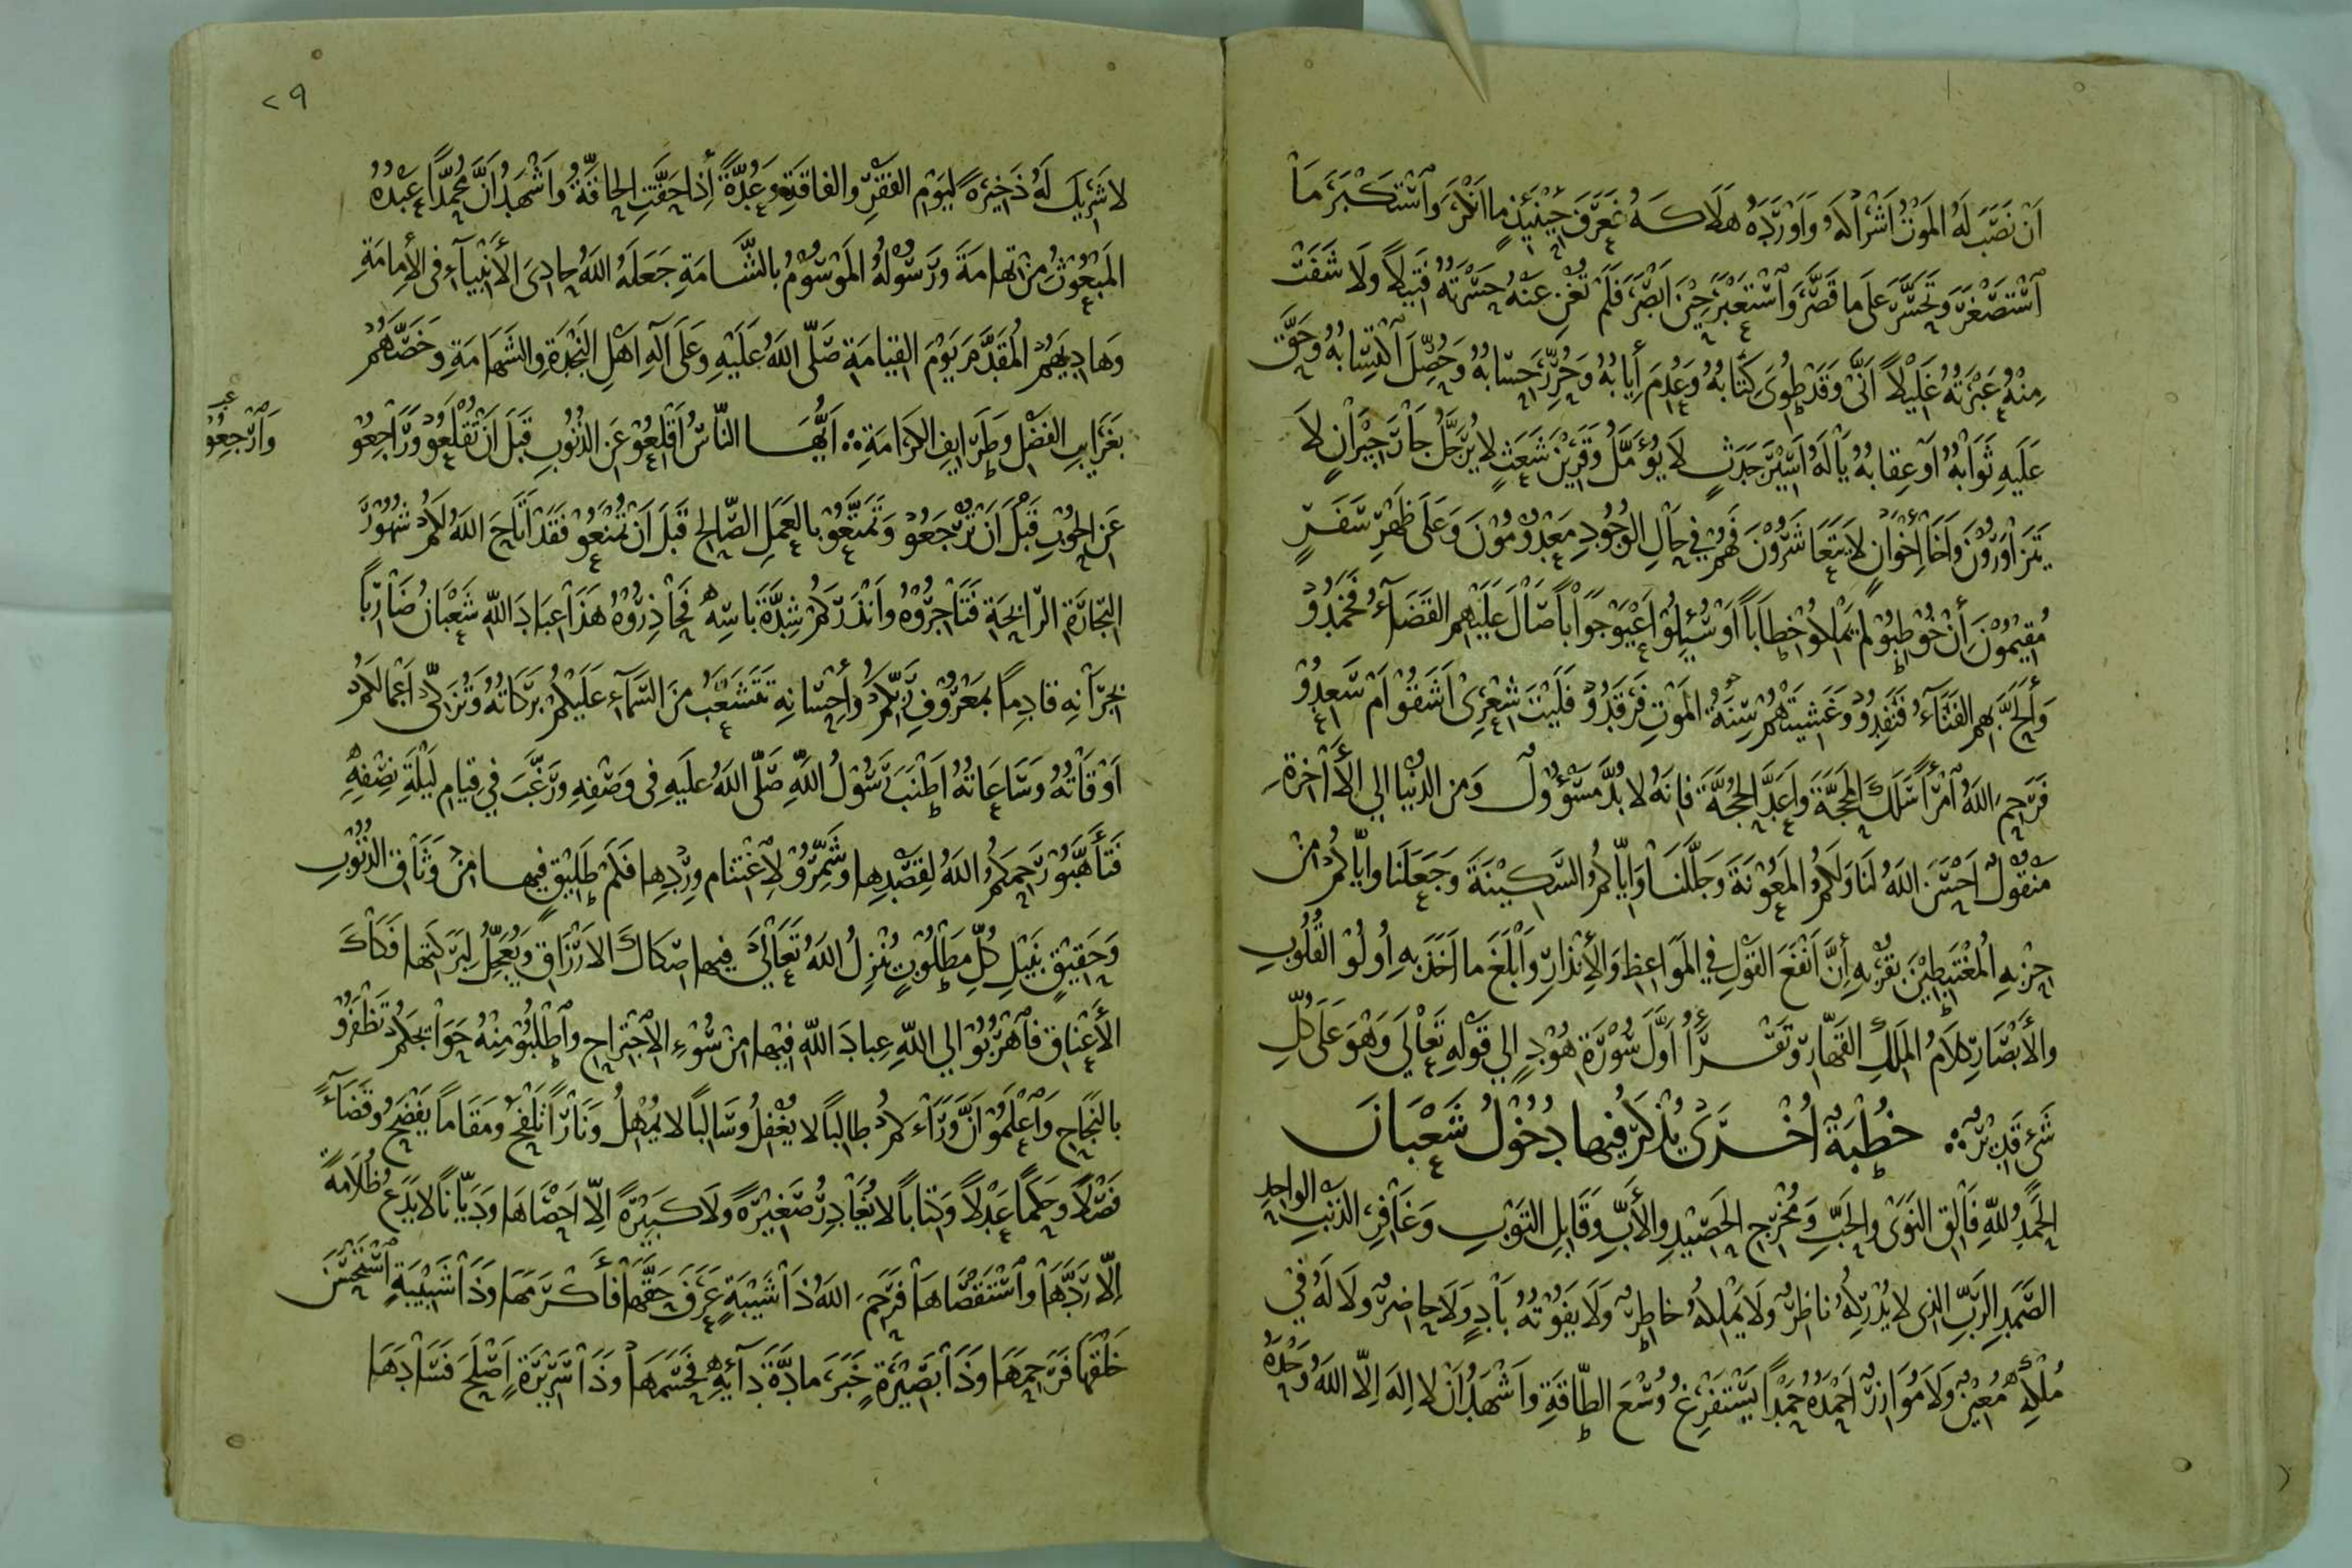 اَنْ نَصَبَ لَهُ المَوْتُ اَشْرَاكَهُ وَاَوْرَدَهُ هَلَاكَهُ فَعَرَفَ حِيْنَئِذٍ مَا اَنْكَرَ وَاسْتَكْبَرَ مَا
اسْتَصْغَرَ وَتَحَسَّرَ عَلَى مَا قَصَّرَ وَاسْتَعْبَرَ حِيْنَ اَبْصَرَ فَلَمْ تُغْنِ عَنْهُ حَسْرَتُهُ فَتِيلاً وَلَا شَفَتْ
مِنْهُ عَبْرَتُهُ غَلِيْلاً اَنَّى وَقَدْ طُوِيَ كِتَابُهُ وَعُدِمَ أِيَابُهُ وَحُرِّرَ حِسَابُهُ وَحُصِّلَ اكْتِسَابُهُ وَحَقَّ
عَلَيهِ ثَوَابُهُ اَوْ عِقَابُهُ يَالَهُ اَسِيْرَ جَدَثٍ لَا يُؤَمَّلُ وَقَرِيْنَ شَعَثٍ لَا يُرَجَّلُ جَارَ جِيْرَانٍ لَا
يَتَزَاوَرُوْنَ وَاَخَا أِخْوَانٍ لَا يَتَعَاشَرُوْنَ فَهُمْ فِي حَالِ الوُجُودِ مَعْدُوْمُوْنَ وَعَلَى ظَهْرِ سَفَرٍ
مُقِيْمُوْنَ أِنْ خُوْطِبُوْا لَمْ يَمْلِكُوْا خِطَاباً اَوْ سُئِلُوْا اَعْيَوْا جَوَاباً صَالَ عَلَيْهِمُ القَضَآءُ فَخَمَدُوْا
وَأَلَحَّ بِهِمُ الفَنَآءُ فَنَفِدُوْا وَغَشِيَتْهُمْ سِنَةُ المَوْتِ فَرَقَدُوْا فَلَيْتَ شِعْرِيْ اَشَقُوْا اَمْ سَعِدُوْا
فَرَحِمَ اللهُ امْرَأً سَلَكَ المَحَجَّةَ وَاَعَدَّ الحُجَّةَ فَاِنَهُ لَا بُدَّ مَسْؤُوْلٌ وَمِنَ الدُّنْيَا اِلَى الْأَخِرَةِ
مَنْقُوْلٌ اَحْسَنَ اللهُ لَنَا وَلَكُمُ المَعُوْنَةَ وَجَلَّلَنَا وَاِيَّاكُمُ السَّكِيْنَةَ وَجَعَلَنَا وَاِيَّاكُمْ مِنْ
حِزْبِهِ الْمُغْتَبِطِيْنَ بِقُرْبِهِ أِنَّ اَنْفَعَ القَوْلِ فِي المَوَاعِظِ وَالْأِنْذَارِ وَاَبْلَغَ مَا اَخَذَ بِهِ اُولُوْا القُلُوبِ
وَالْأَبْصَارِ كَلَامُ المَلِكِ القَهَّارِ وَتَقْرَأُ اَوَّلَ سُوْرَةِ هُوْدٍ اِلَى قَوْلِهِ تَعَالَى وَهْوَ عَلَى كُلِّ
شَيْءٍ قَدِيْرٌ خُطْبَةٌ اُخْرَى يُذْكَرُ فِيْهَا دُخُوْلُ شَعْبَانَ
الحَمْدُ لِلّهِ فَالِقِ النَّوَى وَالحَبِّ وَمُخْرِجِ الحَصِيْدِ وَالأَبِّ وَقَابِلِ التَّوْبِ وَغَافِرِ الذَنْبِ الوَاحِدِ
الصَّمَدِ الرَبِّ الذِي لَا يُدْرِكُهُ نَاظِرٌ وَلَا يَمْلِكُهُ خَاطِرٌ وَلَا يَفُوْتُهُ بَادٍ وَلَا حَاضِرٌ وَلَا لَهُ فِي
مُلْكِهِ مُعِيْنٌ وَلَا مُوَازِرٌ اَحْمَدُهُ حَمْداً يَسْتَفْرِغُ وُسْعَ الطَّاقَةِ وَاَشْهَدُ اَنْ لَا اِلَهَ اِلَّا اللهُ وَحْدَهُ
٢٩
لَا شَرِيْكَ لَهُ ذَخِيْرَةً لِيَوْمِ الفَقْرِ وَالفَاقَةِ وَعُدَّةً أِذَا حَقَّتِ الحَاقَّةُ وَاَشْهَدُ اَنَّ مُحَمَّداً عَبْدُهُ
المَبْعُوْثُ مِنْ تِهَامَةَ وَرَسُوْلُهُ المَوْسُوْمُ بِالشَّامَةِ جَعَلَهُ اللهُ حَادِيَ الأَنْبِيَآءِ فِي الأِمَامَةِ
وَهَادِيَهُمُ المُقَدَّمَ يَوْمَ القِيَامَةِ صَلَّى اللهُ عَلَيْهِ وَعَلَى آلِهِ اَهْلِ النَّجْدَةِ وَالشَّهَامَةِ وَخَصَّهُمْ
بِغَرَايِبِ الفَضْلِ وَطَرَايِفِ الكَرَامَةِ اَيُّهَا النَّاسُ اَقْلِعُوْا عَنِ الذُّنُوْبِ قَبْلَ اَنْ تُقْلَعُوْا وَرَاجِعُوْا
وَارْجِعُوْا
عَنِ الحُوْبِ قَبْلَ اَنْ تُرْجَعُوْا وَتَمَتَّعُوْا بِالعَمَلِ الصَّالِحِ قَبْلَ اَنْ تُمْنَعُوْا فَقَدْ اَتَاحَ اللهُ لَكُمْ شُهُوْرَ
التِّجَارَةِ الرَّابِحَةِ فَتَاجِرُوْهُ وَاَنْذَرَكُمْ شِدَّةَ بَاسِهِ فَحَاذِرُوْهُ هَذَا عِبَادَ اللّهِ شَعْبَانُ ضَارِباً
بِجِرَانِهِ قَادِماً بِمَعْرُوْفِ رَبِّكُمْ وَأِحْسَانِهِ تَتَشَعَّبُ مِنَ السَّمَآءِ عَلَيْكُمْ بَرَكَاتُهُ وَتُزَكِّي اَعْمَالَكُمْ
اَوْقَاتُهُ وَسَاعَاتُهُ اَطْنَبَ رَسُوْلُ اللّهِ صَلَّى اللهُ عَلَيهِ فِي وَصْفِهِ وَرَغَّبَ فِي قِيَامِ لَيْلَةِ نِصْفِهِ
فَتَأَهَّبُوْا رَحِمَكُمُ اللهُ لِقَصْدِهَا وَشَمِّرُوْا لِاغْتِنَامِ وِرْدِهَا فَكَمْ طَلِيْقٍ فِيهَا مِنْ وَثَاقِ الذُّنُوْبِ
وَحَقِيْقٍ بِنَيْلِ كُلِّ مَطْلُوْبٍ يُنْزِلُ اللهُ تَعَالَى فِيهَا صِكَاكَ الأَرْزَاقِ وَيُعَجِّلُ لِبَرَكَتِهَا فَكَاكَ
الأَعْنَاقِ فَاهْرُبُوْا اِلَى اللّهِ عِبَادَ اللّهِ فِيْهَا مِنْ سُوْءِ الِاجْتِرَاحِ وَاطْلُبُوْا مِنْهُ حَوَائِجَكُمْ تَظْفَرُوْا
بِالنَّجَاحِ وَاعْلَمُوْا اَنَّ وَرَاءَكُمْ طَالِباً لَا يُغْفِلُ وَسَالِباً لَا يُمْهِلُ وَنَاراً تَلْفَحُ وَمَقَاماً يَفْضَحُ وَقَضَآءً
فَصْلاً وَحَكَماً عَدْلاً وَكِتَاباً لَا يُغَادِرُ صَغِيْرَةً وَلَا كَبِيْرَةً اِلَّا اَحْصَاهَا وَدَيَّاناً لَا يَدَعُ ظُلَامَةً
اِلَّا رَدَّهَا وَاسْتَقْصَاهَا فَرَحِمَ اللهُ ذَا شَيْبَةٍ عَرَفَ حَقَّهَا فَأَكْرَمَهَا وَذَا شَبِيْبَةٍ اسْتَحْسَنَ
خَلْقَهَا فَرَحِمَهَا وَذَا بَصِيْرَةٍ خَبَرَ مَادَّةَ دَآئِهِ فَحَسَمَهَا وَذَا سَرِيْرَةٍ اَصْلَحَ فَسَادَهَا